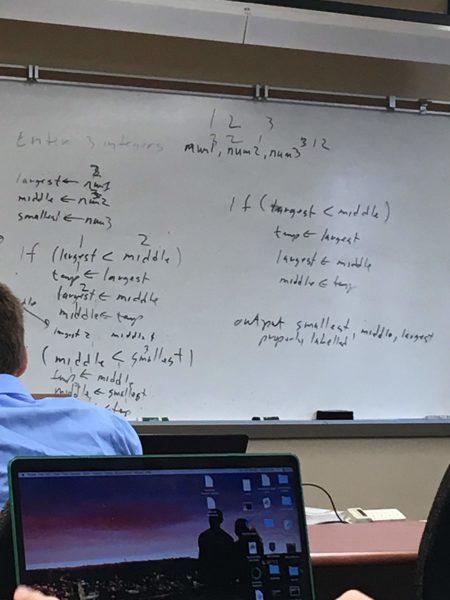 1 2 3
Enter 3 integers
3 2 1
num1, num2, num3
3 1 2
largest ← num1
middle ← num2
smallest ← num3
1 2
If (largest < middle)
tmp ← largest
largest ← middle
middle ← tmp
largest 2 middle
(middle < smallest)
tmp ← middle
middle ← smallest
← tmp
If (largest < middle)
tmp ← largest
largest ← middle
middle ← tmp
output smallest, middle, largest
properly labelled